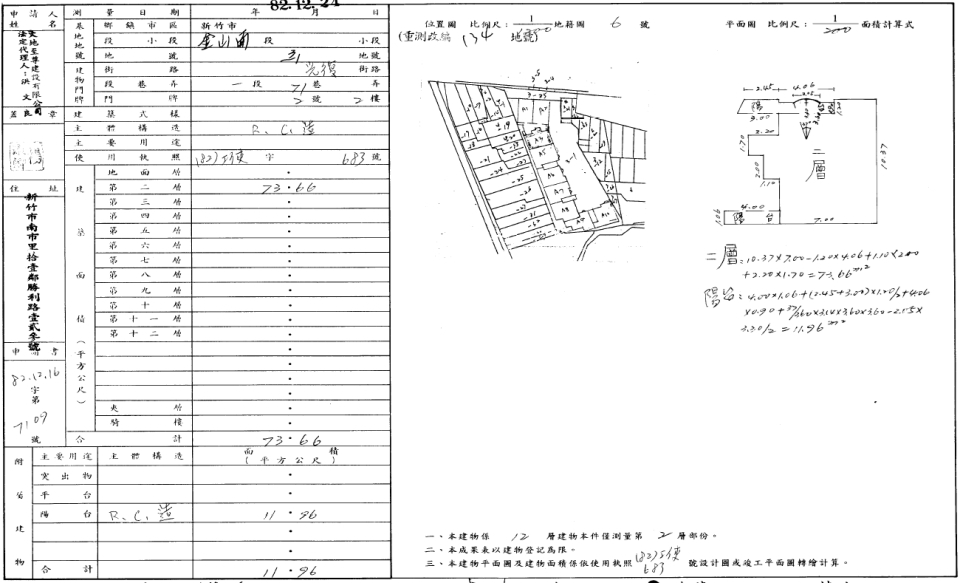 82.12.24
申請人姓名
天地至尊建設有限公司
法定代理人：洪文良
蓋章
住址
新竹市南市里拾壹鄰勝利路壹貳參號
申請書
82.12.16
字第
7109
號
測量日期 年 月 日
基地地號
鄉鎮市區 新竹市
段小段 金山南 段 小段
地號 31 地號
建物門牌
街路 光復 街路
段巷弄 一段 71 巷 弄
門牌 2 號 2 樓
建築式樣
主體構造 R.C.造
主要用途
使用執照 (82)工使 字 683 號
建築面積（平方公尺）
地面層
第二層 73.66
第三層
第四層
第五層
第六層
第七層
第八層
第九層
第十層
第十一層
第十二層
夾層
騎樓
合計 73.66
附屬建物
主要用途 主體構造 面積（平方公尺）
突出物
平台
陽台 R.C.造 11.96
合計 11.96
位置圖 比例尺： 1 地籍圖 6 號
(重測改編 134 地號)
平面圖 比例尺：1/200 面積計算式
3-25
A1
A3
A5
A6
A7
A8
2.45 4.06
陽
3.00
2.20
1.70
2.00
1.10
二層
10.37
4.00
1.06
陽台
7.00
二層=10.37×7.00-1.20×4.06+1.10×2.00
+2.20×1.70=73.66m²
陽台=4.00×1.06+(2.45+3.00)×1.20/2+4.06
×0.90+ /360×3.14×3.60×3.60-2.15×
3.30/2=11.96m²
一、本建物係 12 層建物本件僅測量第 2 層部份。
二、本成果表以建物登記為限。
三、本建物平面圖及建物面積係依使用執照 (82)工使 683 號設計圖或竣工平面圖轉繪計算。